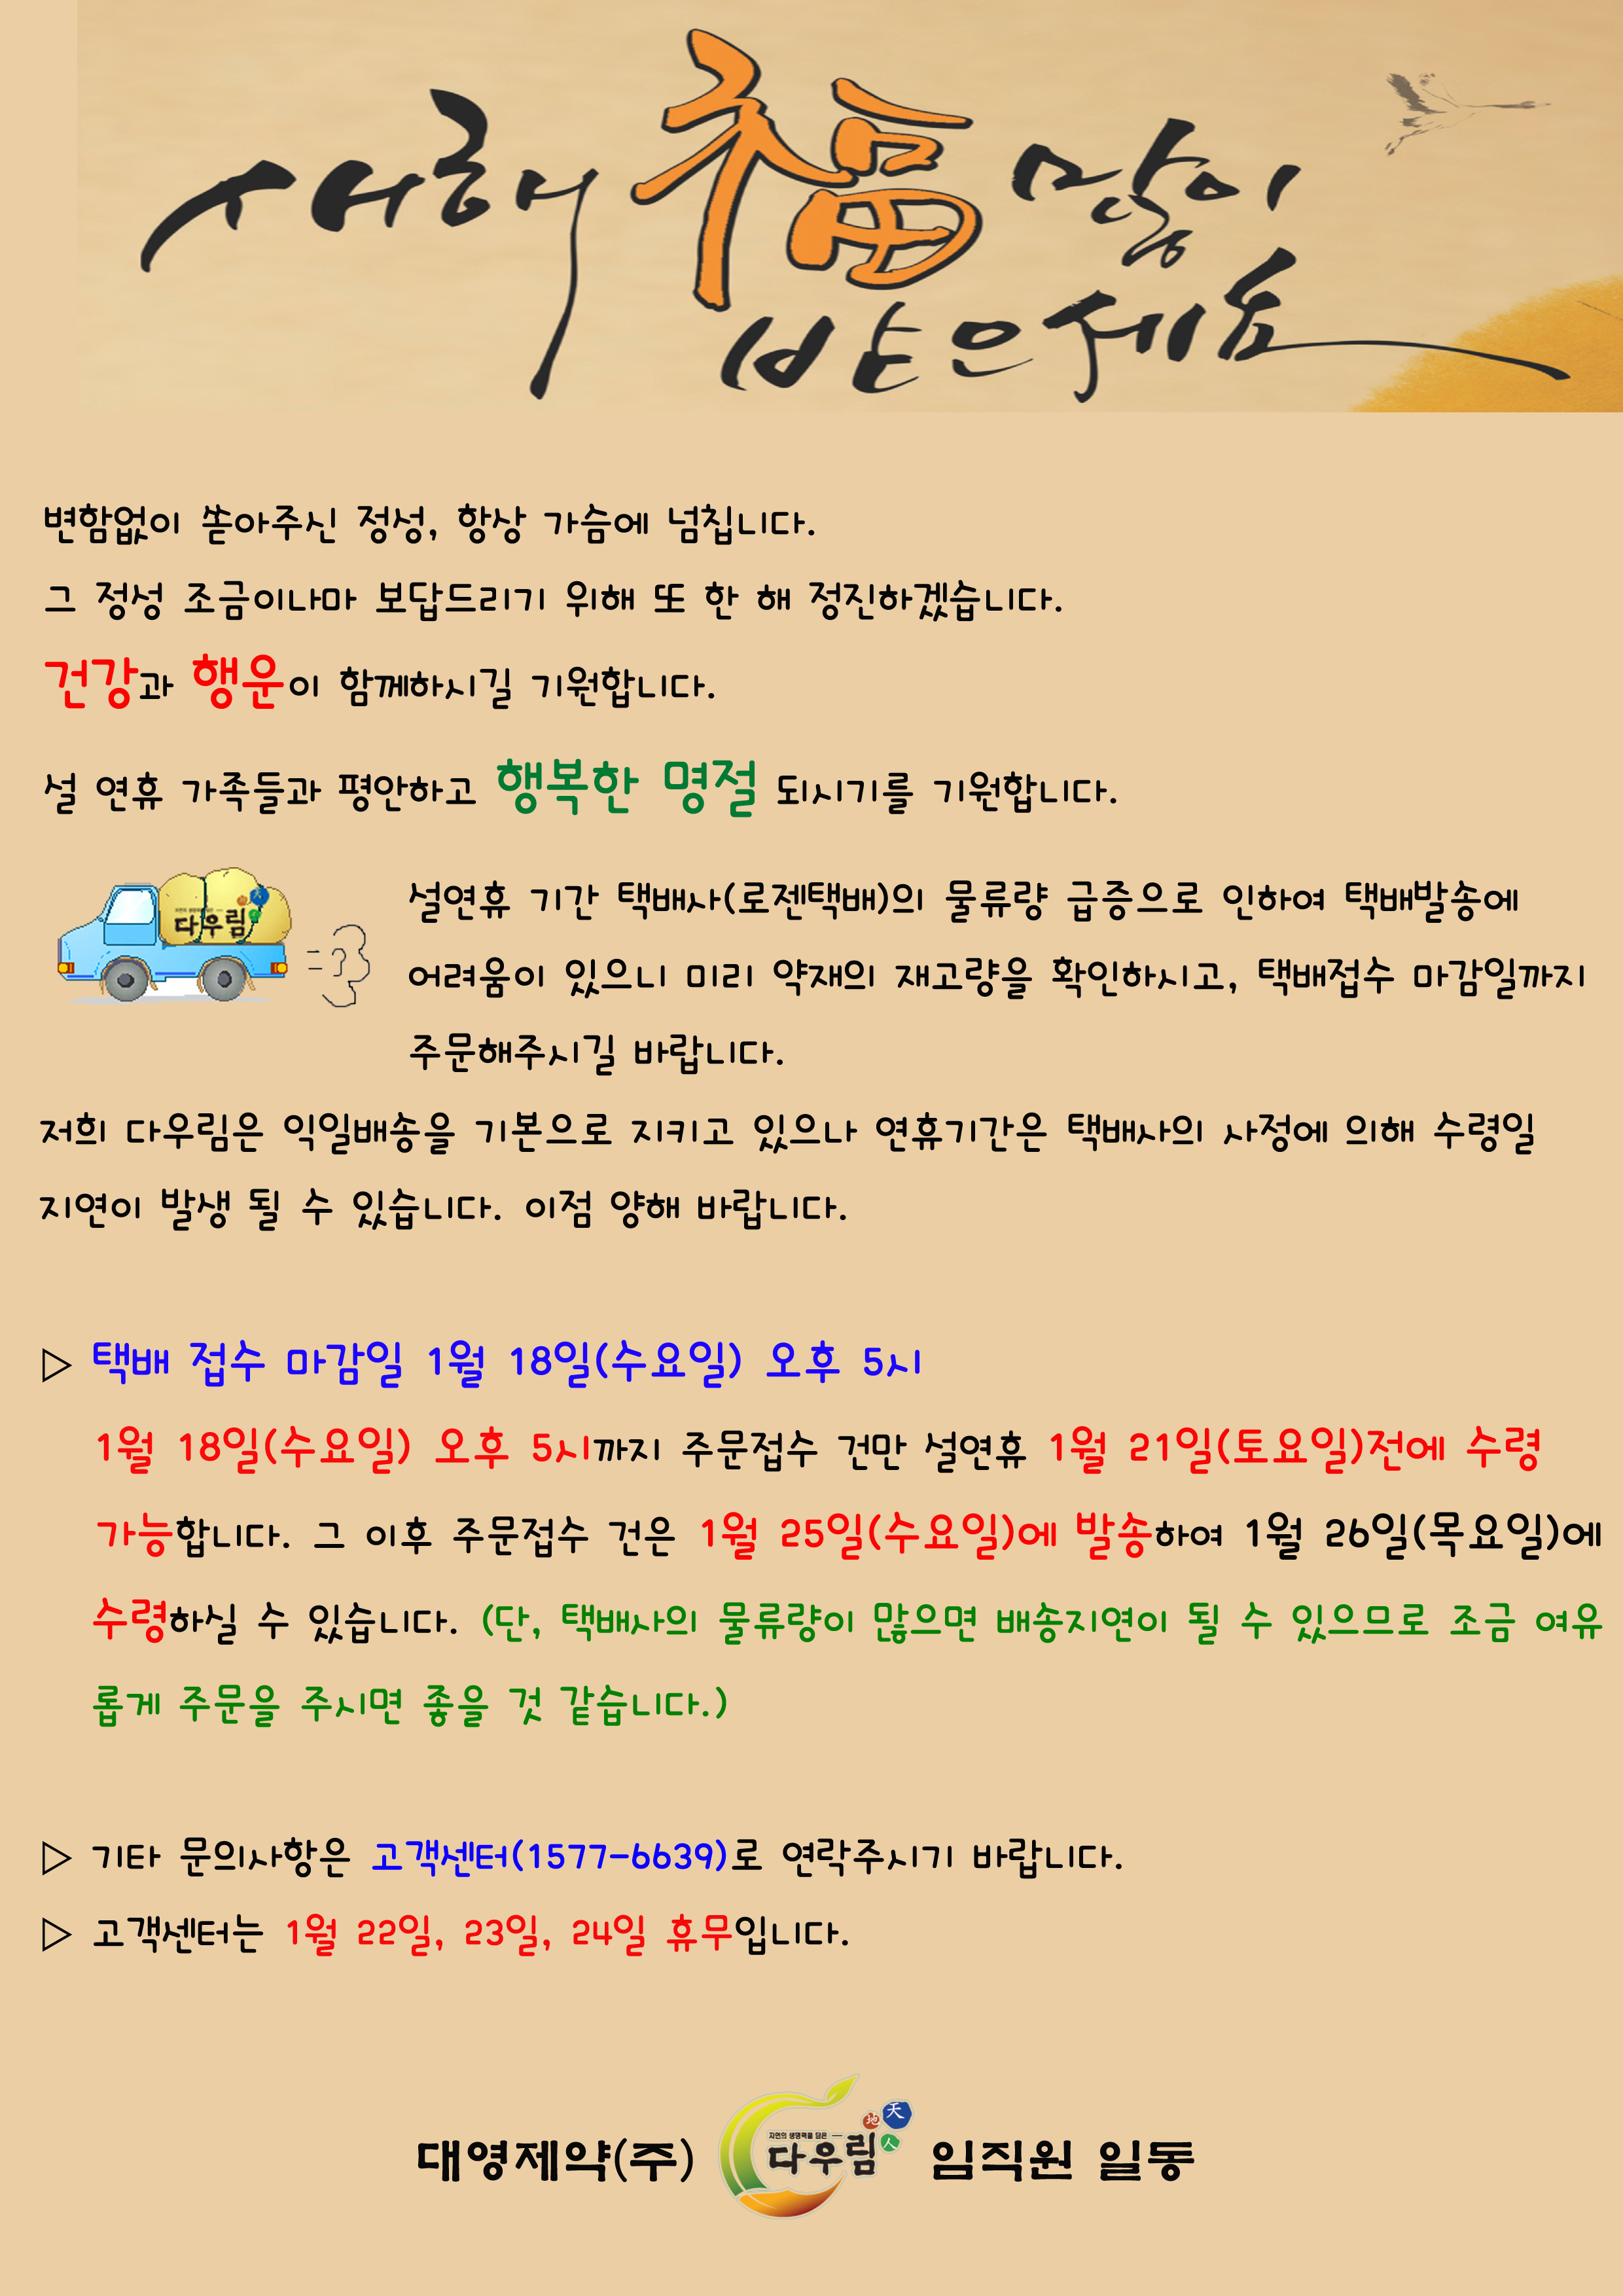 새해 福 많이
받으세요
변함없이 쏟아주신 정성, 항상 가슴에 넘칩니다.
그 정성 조금이나마 보답드리기 위해 또 한 해 정진하겠습니다.
건강과 행운이 함께하시길 기원합니다.
설 연휴 가족들과 평안하고 행복한 명절 되시기를 기원합니다.
다우림
설연휴 기간 택배사(로젠택배)의 물류량 급증으로 인하여 택배발송에
어려움이 있으니 미리 약재의 재고량을 확인하시고, 택배접수 마감일까지
주문해주시길 바랍니다.
저희 다우림은 익일배송을 기본으로 지키고 있으나 연휴기간은 택배사의 사정에 의해 수령일
지연이 발생 될 수 있습니다. 이점 양해 바랍니다.
▷ 택배 접수 마감일 1월 18일(수요일) 오후 5시
1월 18일(수요일) 오후 5시까지 주문접수 건만 설연휴 1월 21일(토요일)전에 수령
가능합니다. 그 이후 주문접수 건은 1월 25일(수요일)에 발송하여 1월 26일(목요일)에
수령하실 수 있습니다. (단, 택배사의 물류량이 많으면 배송지연이 될 수 있으므로 조금 여유
롭게 주문을 주시면 좋을 것 같습니다.)
▷ 기타 문의사항은 고객센터(1577-6639)로 연락주시기 바랍니다.
▷ 고객센터는 1월 22일, 23일, 24일 휴무입니다.
天
地
人
자연의 생명력을 담은
대영제약(주) 다우림 임직원 일동